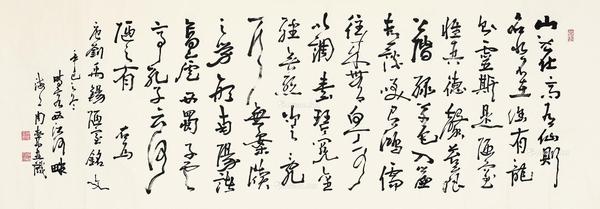 山不在高有仙則
名水不在深有龍
則靈斯是陋室
惟吾德馨苔痕
上階綠草色入簾
青談笑有鴻儒
往來無白丁可
以調素琴閱金
經無絲竹之亂
耳無案牘
之勞形南陽諸
葛廬西蜀子雲
亭孔子云何
陋之有 右為
唐劉禹錫陋室銘文
辛巳之冬